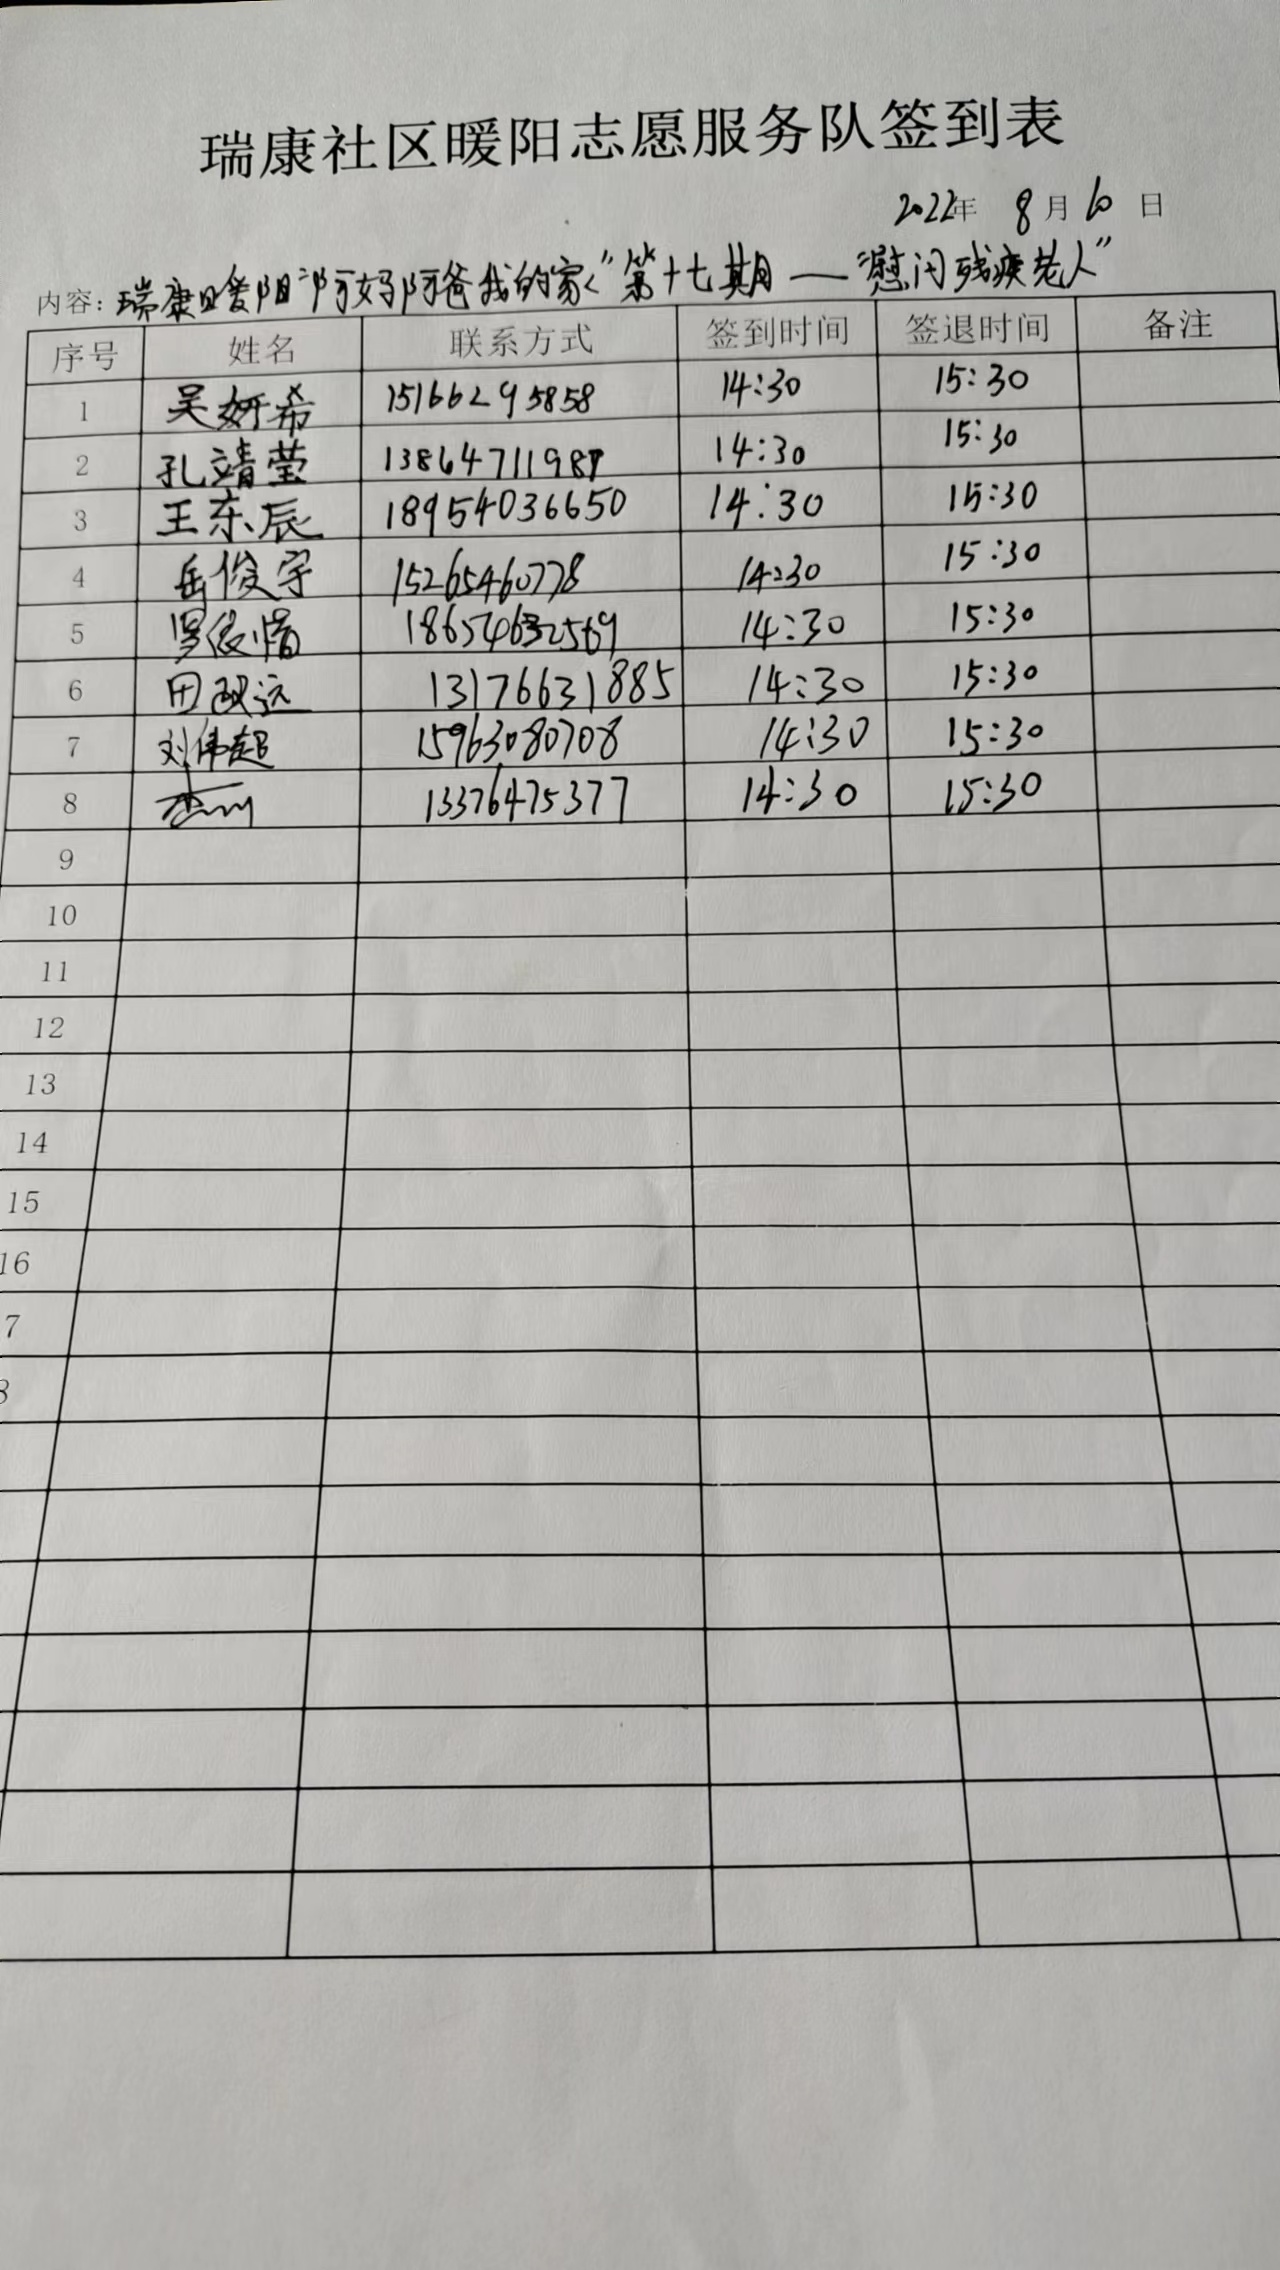 瑞康社区暖阳志愿服务队签到表
2022年 8月10日
内容: 瑞康暖阳"阿妈阿爸我的家"第十七期——"慰问残疾老人"
序号 姓名 联系方式 签到时间 签退时间 备注
1 吴妍希 15166295858 14:30 15:30
2 孔靖莹 13864711987 14:30 15:30
3 王东辰 18954036650 14:30 15:30
4 岳俊宇 15265460778 14:30 15:30
5 14:30 15:30
6 田政远 13176631885 14:30 15:30
7 刘伟超 15963080708 14:30 15:30
8 13376475377 14:30 15:30
9
10
11
12
13
14
15
16
7
8